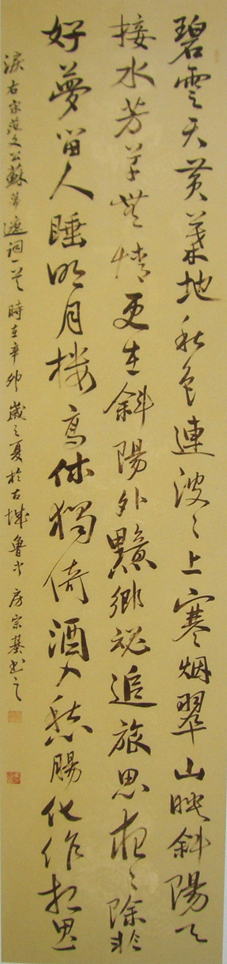 碧雲天黄葉地秋色連波々上寒烟翠山映斜陽天
接水芳草無情更在斜陽外黯鄉魂追旅思夜々除非
好夢留人睡明月樓高休獨倚酒入愁腸化作相思
淚右宋范文公蘇幕遮詞一首時在辛卯歲之夏於古城魯房宗书之